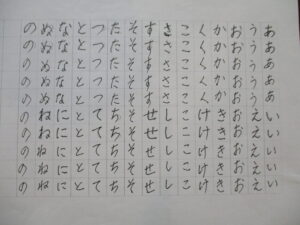 あああああいいいいい
うううううえええええ
おおおおおおおおおお
かかかかかききききき
くくくくくけけけけけ
ここここここここここ
さささささししししし
すすすすすせせせせせ
そそそそそそそそそそ
たたたたたちちちちち
つつつつつててててて
とととととととととと
なななななににににに
ぬぬぬぬぬねねねねね
のののののののののの